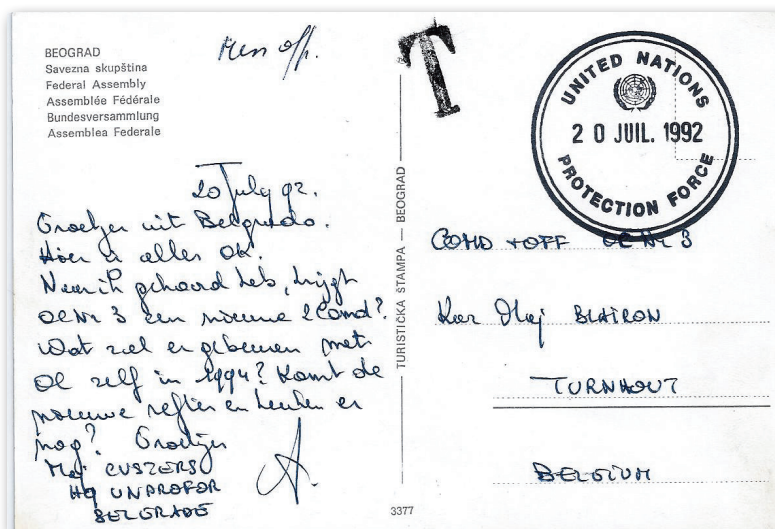 BEOGRAD
Savezna skupština
Federal Assembly
Assemblée Fédérale
Bundesversammlung
Assemblea Federale
Mess off.
T
UNITED NATIONS
20 JUIL. 1992
PROTECTION FORCE
20 July 92.
Groetjes uit Belgrado.
Hier is alles OK.
Naar ik gehoord heb, krijgt
OC Nr 3 een nieuwe 2Comd?
Wat zal er gebeuren met
OC zelf in 1994? Komt de
nieuwe refter en keuken er
nog? Groetjes
Maj CUSTERS
HQ UNPROFOR
BELGRADE
TURISTIČKA ŠTAMPA — BEOGRAD
COMD + OFF OC Nr 3
Kwr Maj BLAIRON
TURNHOUT
BELGIUM
3377